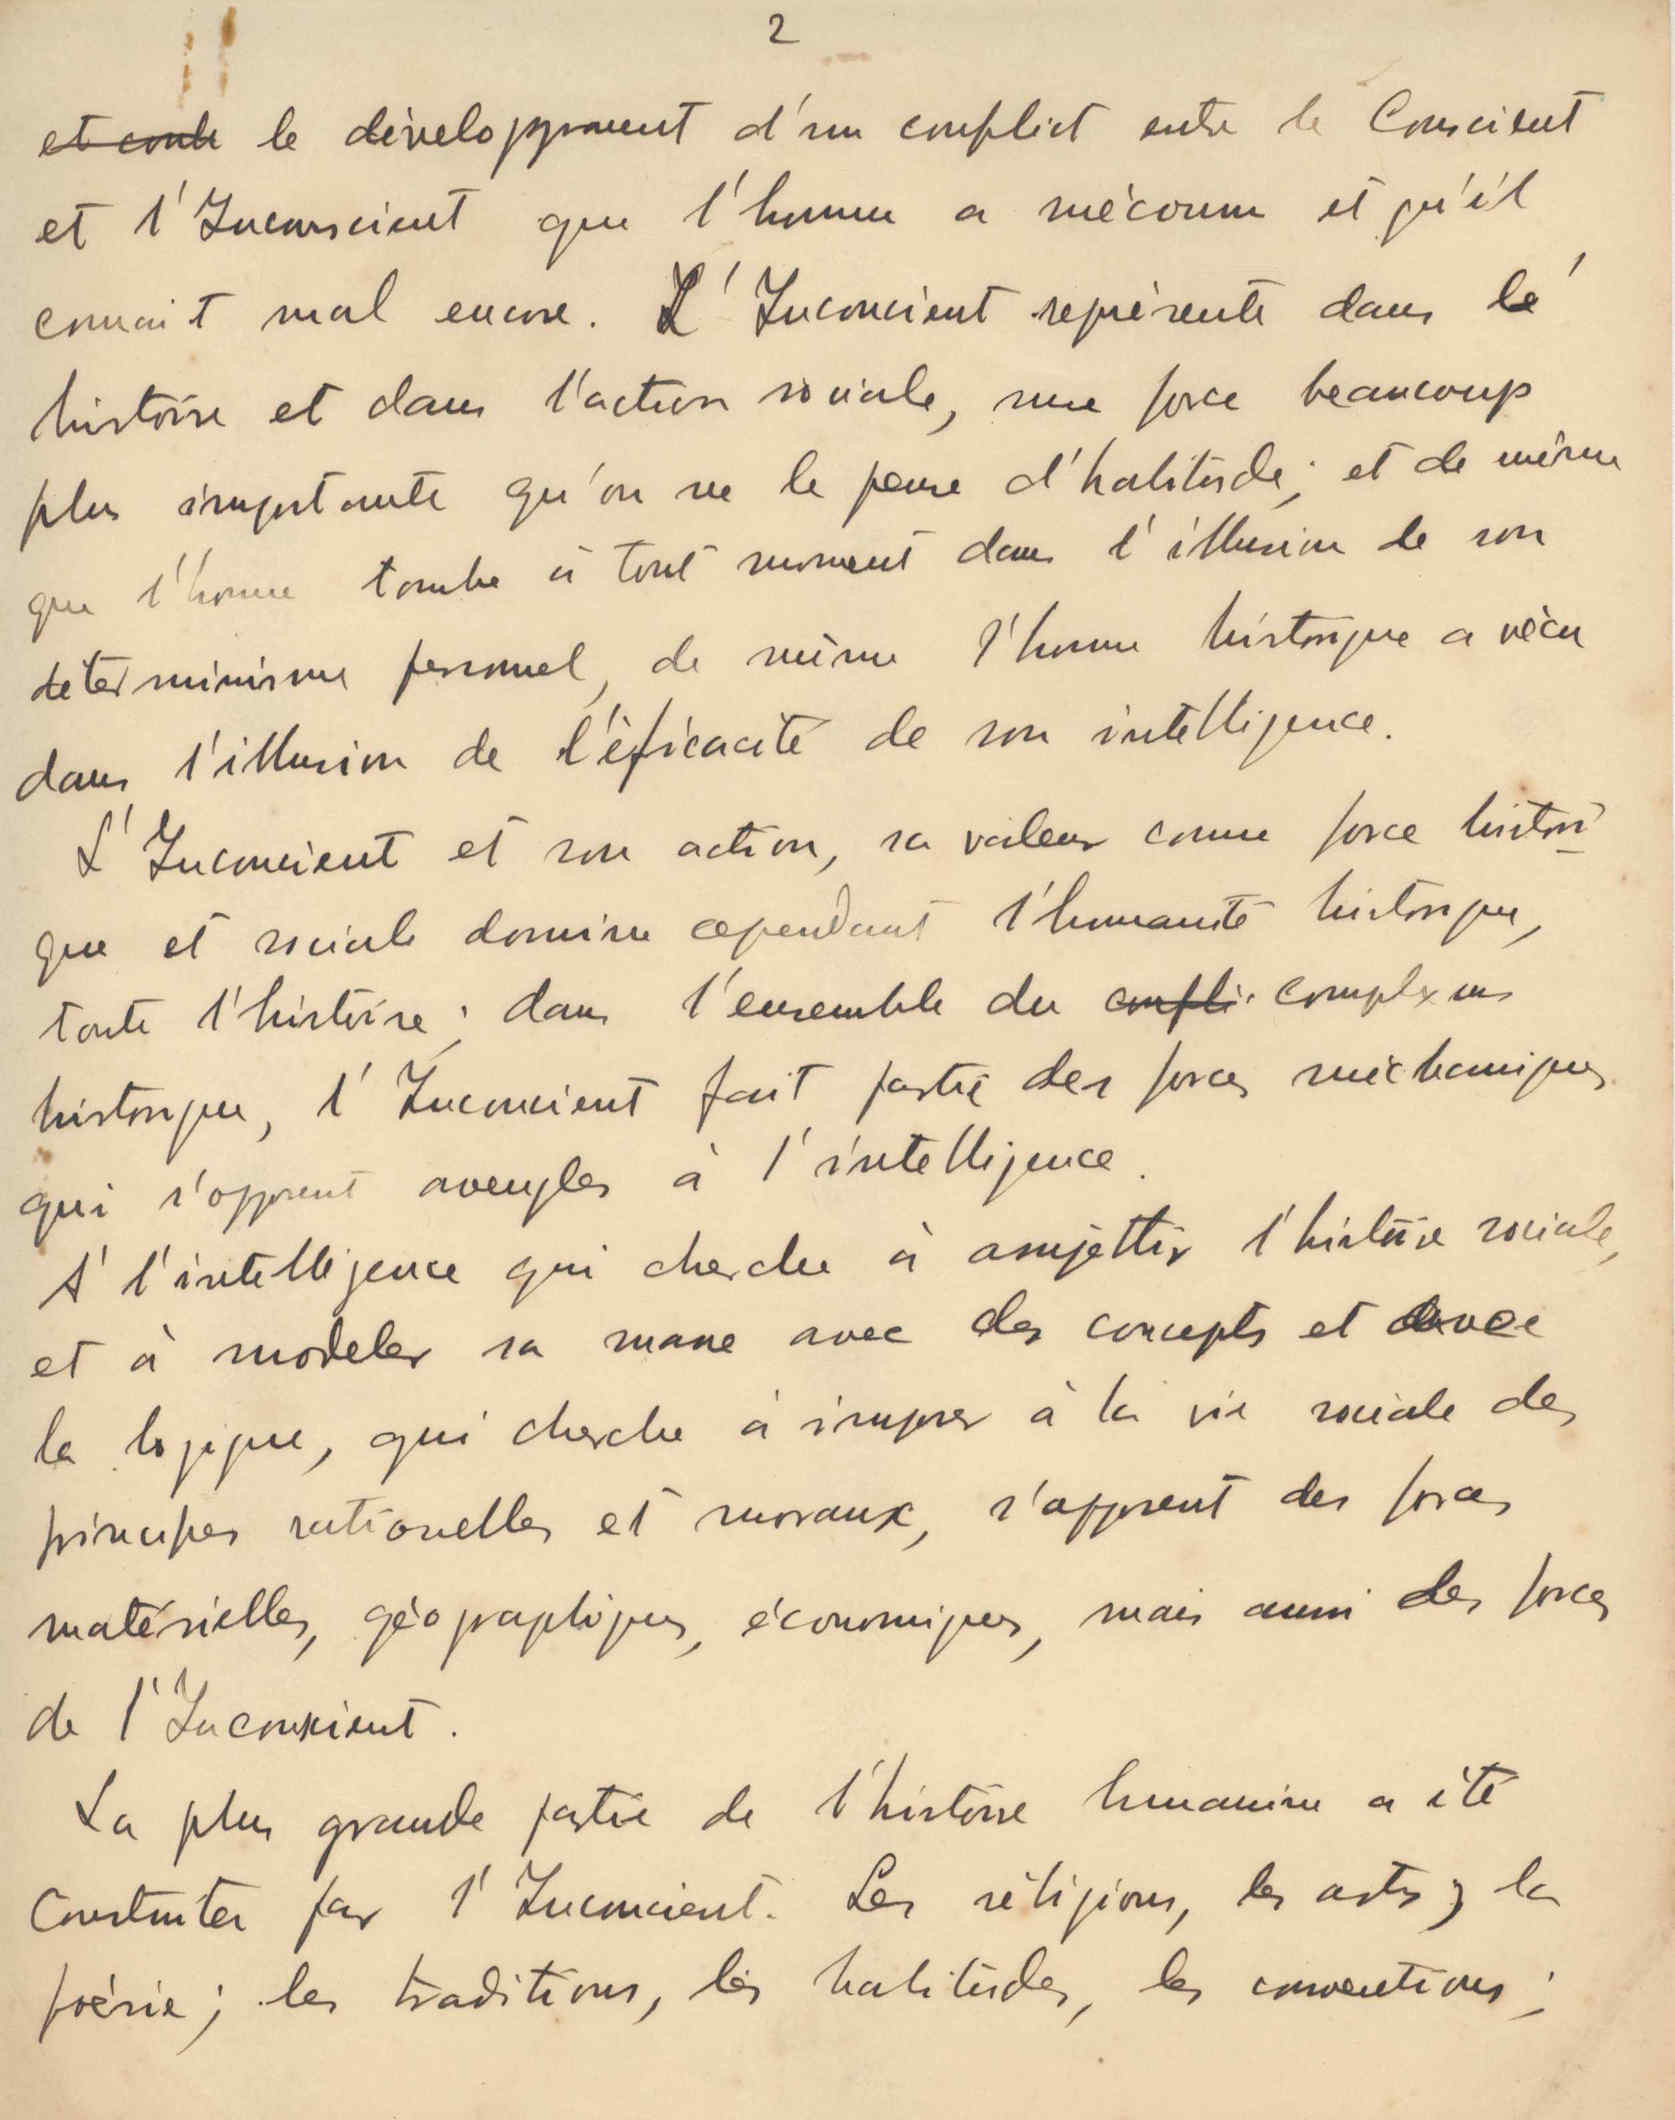 2
et conte le dévelopmment d'un conflict entre le Conscient
et l'Inconscient que l'homme a méconnu et qu'il
connait mal encore. L'Inconcient représente dans le'
histoire et dans l'action sociale, une force beaucoup
plus importante qu'on ne le pense d'habitude; et de même
que l'homme tombe à tout moment dans l'illusion de son
déterminisme personnel, de même l'homme historique a vécu
dans l'illusion de l'éficacité de son intelligence.
L'Inconcient et son action, sa valeur comme force histori-
que et sociale domine cependant l'humanité historique,
toute l'histoire; dans l'ensemble du confli complexus
historique, l'Inconcient fait partie des forces méchaniques
qui s'opposent aveugles à l'intelligence.
A l'intelligence qui cherche à assujettir l'histoire sociale,
et à modeler sa masse avec des concepts et avec
la logique, qui cherche à imposer à la vie sociale des
principes rationelles et moraux, s'opposent des forces
matérielles, géographiques, économiques, mais aussi des forces
de l'Inconscient.
La plus grande partie de l'histoire humaine a été
construites par l'Inconcient. Les réligions, les arts, la
poésie; les traditions, les habitudes, les conventions;